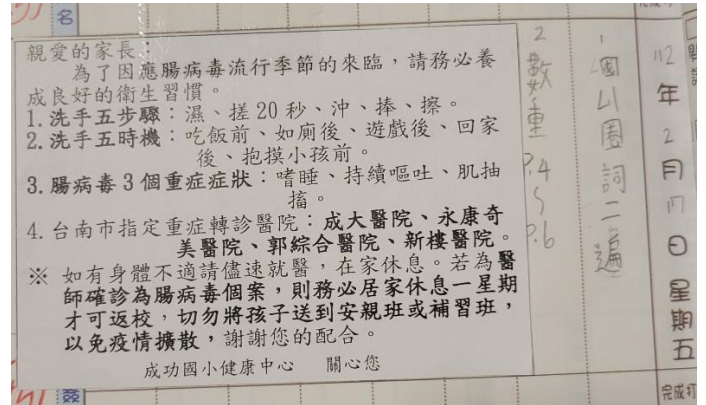 名
親愛的家長：
為了因應腸病毒流行季節的來臨，請務必養
成良好的衛生習慣。
1.洗手五步驟：濕、搓20秒、沖、捧、擦。
2.洗手五時機：吃飯前、如廁後、遊戲後、回家
後、抱摸小孩前。
3.腸病毒3個重症症狀：嗜睡、持續嘔吐、肌抽
搐。
4.台南市指定重症轉診醫院：成大醫院、永康奇
美醫院、郭綜合醫院、新樓醫院。
※ 如有身體不適請儘速就醫，在家休息。若為醫
師確診為腸病毒個案，則務必居家休息一星期
才可返校，切勿將孩子送到安親班或補習班，
以免疫情擴散，謝謝您的配合。
成功國小健康中心 關心您
112年2月17日星期五
1.國L1圈詞二遍
2數重P.4~P.6
簽
完成打